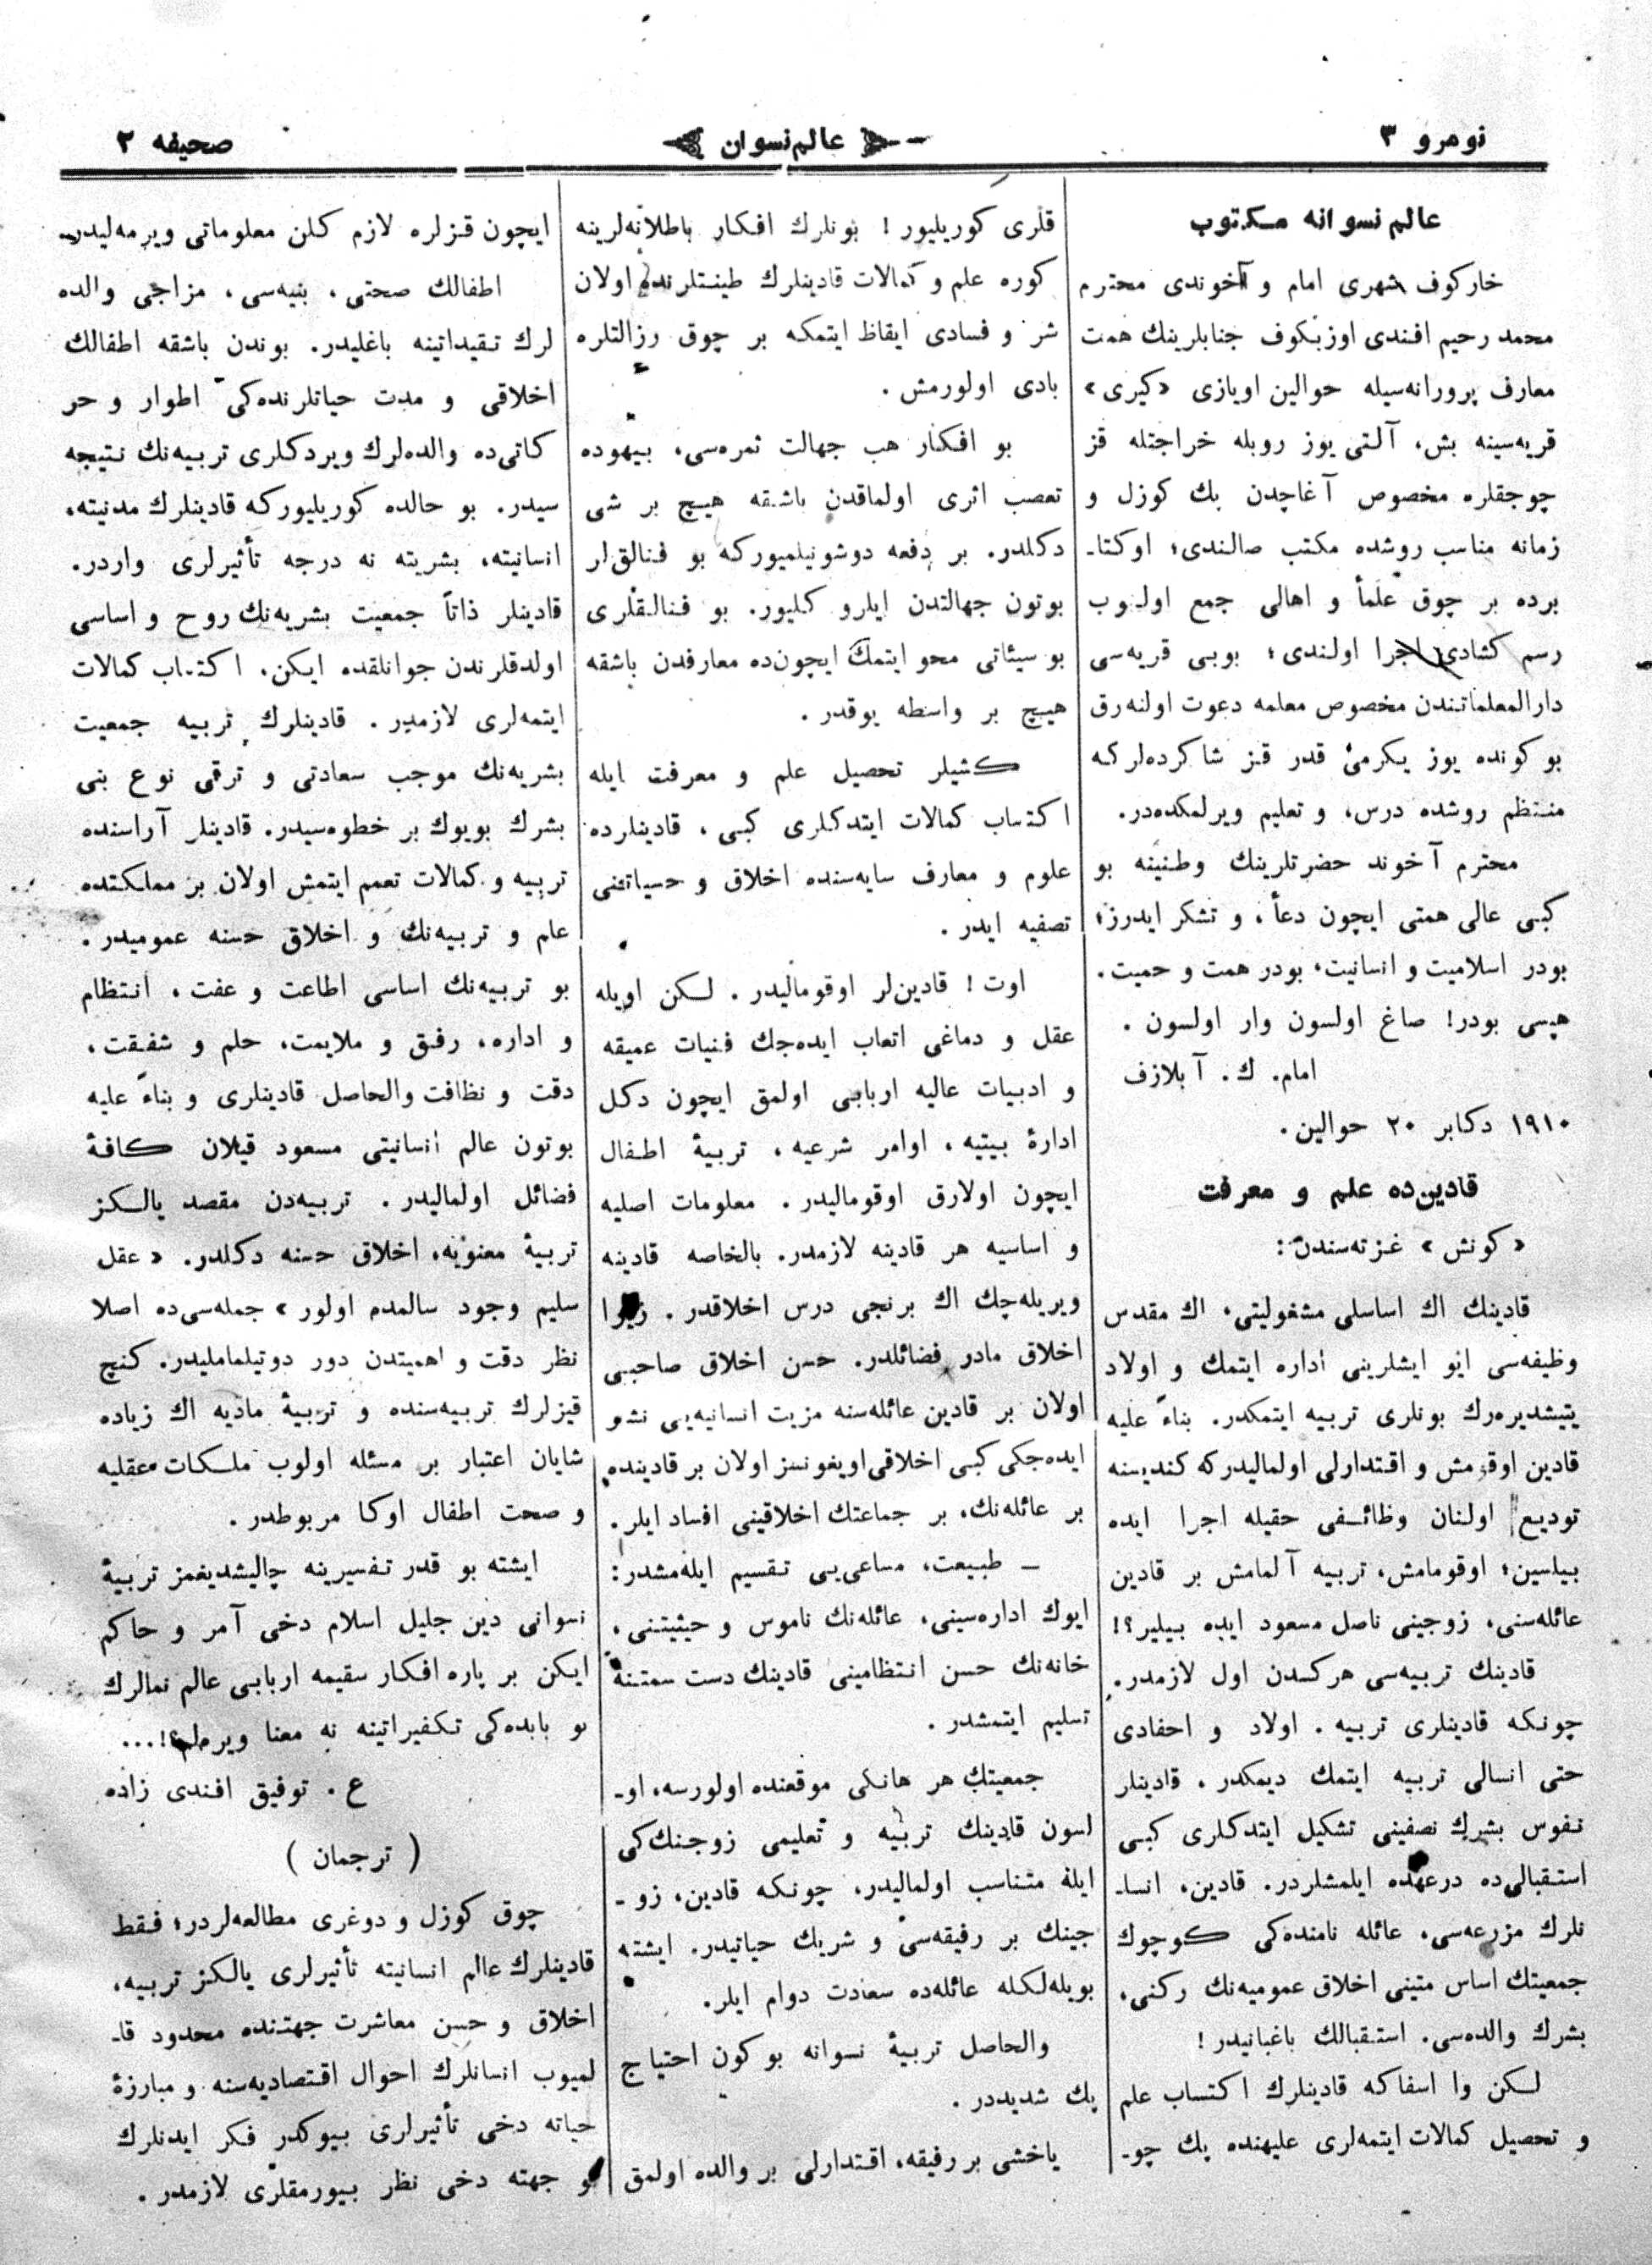 نومرو ٣
عالم نسوان
صحیفه ٢
عالم نسوانه مکتوب
خارکوف شهری امام و آخوندی محترم
محمد رحیم افندی اوزبکوف جنابلرینك همت
معارف پرورانه‌سیله حوالین اویازی «کیری»
قریه‌سینه بش، آلتی یوز روبله خراجتله قز
چوجقلره مخصوص آغاچدن بك کوزل و
زمانه مناسب روشده مکتب صالندی؛ اوکتا-
برده بر چوق علمأ و اهالی جمع اولوب
رسم کشادی اجرا اولندی؛ بوبی قریه‌سی
دارالمعلماتندن مخصوص معلمه دعوت اولنه‌رق
بو کونده یوز یکرمی قدر قز شاکرده‌لرکه
منتظم روشده درس، و تعلیم ویرلمکده‌در.
محترم آخوند حضرتلرینك وطنینه بو
کبی عالی همتی ایچون دعأ، و تشکر ایدرز؛
بودر اسلامیت و انسانیت، بودر همت و حمیت.
هپسی بودر! صاغ اولسون وار اولسون .
امام. ك. آبلازف
١٩١٠ دکابر ٢٠ حوالین.
قادین‌ده علم و معرفت
« کونش » غزته‌سندن :
قادینك اك اساسلی مشغولیتی، اك مقدس
وظیفه‌سی ایو ایشلرینی اداره ایتمك و اولاد
یتیشدیره‌رك بونلری تربیه ایتمکدر. بناءً علیه
قادین اوقومش و اقتدارلی اولمالیدرکه کندیسنه
تودیع اولنان وظائفی حقیله اجرا ایده
بیلسین؛ اوقومامش، تربیه آلمامش بر قادین
عائله‌سنی، زوجینی ناصل مسعود ایده بیلیر؟!
قادینك تربیه‌سی هرکسدن اول لازمدر.
چونکه قادینلری تربیه . اولاد و احفادی
حتی انسالی تربیه ایتمك دیمکدر . قادینلر
نفوس بشرك نصفینی تشکیل ایتدکلری کبی
استقبالی‌ده درعهده ایلمشلردر. قادین، انسا-
نلرك مزرعه‌سی، عائله نامنده‌کی کوچوك
جمعیتك اساس متینی اخلاق عمومیه‌نك رکنی،
بشرك والده‌سی. استقبالك باغبانیدر !
لکن وا اسفاکه قادینلرك اکتساب علم
و تحصیل کمالات ایتمه‌لری علیهنده پك چو-
قلری کوریلیور ! بونلرك افکار باطلانه‌لرینه
کوره علم و کمالات قادینلرك طینتلرنده اولان
شر و فسادی ایقاظ ایتمکه بر چوق رزالتلره
بادی اولورمش .
بو افکار هب جهالت ثمره‌سی، بیهوده
تعصب اثری اولماقدن باشقه هیچ بر شی
دکلدر. بر دفعه دوشونیلمیورکه بو فنالق‌لر
بوتون جهالتدن ایلرو کلیور. بو فنالقلری
بو سیئاتی محو ایتمك ایچون‌ده معارفدن باشقه
هیچ بر واسطه یوقدر .
کشیلر تحصیل علم و معرفت ایله
اکتساب کمالات ایتدکلری کبی ، قادینلرده
علوم و معارف سایه‌سنده اخلاق و حسیاتنی
تصفیه ایدر .
اوت ! قادین‌لر اوقومالیدر . لکن اویله
عقل و دماغی اتعاب ایده‌جك فنیات عمیقه
و ادبیات عالیه اربابی اولمق ایچون دکل
ادارهٔ بیتیه ، اوامر شرعیه ، تربیهٔ اطفال
ایچون اولارق اوقومالیدر . معلومات اصلیه
و اساسیه هر قادینه لازمدر. بالخاصه قادینه
ویریله‌جك اك برنجی درس اخلاقدر . زیرا
اخلاق مادر فضائلدر. حسن اخلاق صاحبی
اولان بر قادین عائله‌سنه مزیت انسانیه‌یی نشو
ایده‌جکی کبی اخلاقی اویغونسز اولان بر قادینده
بر عائله‌نك، بر جماعتك اخلاقینی افساد ایلر.
– طبیعت، مساعی‌یی تقسیم ایله‌مشدر:
ایوك اداره‌سینی، عائله‌نك ناموس و حیثیتنی ،
خانه‌نك حسن انتظامینی قادینك دست سمتنه
تسلیم ایتمشدر .
جمعیتك هر هانکی موقعنده اولورسه، او-
لسون قادینك تربیه و تعلیمی زوجنك‌کی
ایله متناسب اولمالیدر، چونکه قادین، زو-
جینك بر رفیقه‌سی و شریك حیاتیدر. ایشته
بویله‌لکله عائله‌ده سعادت دوام ایلر.
والحاصل تربیهٔ نسوانه بو کون احتیاج
پك شدیددر .
یاخشی بر رفیقه، اقتدارلی بر والده اولمق
ایچون قزلره لازم کلن معلوماتی ویرمه‌لیدر.
اطفالك صحتی ، بنیه‌سی، مزاجی والده
لرك تقیداتینه باغلیدر. بوندن باشقه اطفالك
اخلاقی و مدت حیاتلرنده‌کی اطوار و حر
کاتی‌ده والده‌لرك ویردکلری تربیه‌نك نتیجه
سیدر. بو حالده کوریلیورکه قادینلرك مدنیته،
انسانیته، بشریته نه درجه تأثیرلری واردر.
قادینلر ذاتاً جمعیت بشریه‌نك روح و اساسی
اولدقلرندن جوانلقده ایکن، اکتساب کمالات
ایتمه‌لری لازمدر . قادینلرك تربیه جمعیت
بشریه‌نك موجب سعادتی و ترقی نوع بنی
بشرك بویوك بر خطوه‌سیدر. قادینلر آراسنده
تربیه و کمالات تعمم ایتمش اولان بر مملکتده
علم و تربیه‌نك و اخلاق حسنه عمومیدر.
بو تربیه‌نك اساسی اطاعت و عفت ، انتظام
و اداره، رفق و ملایمت، حلم و شفقت ،
دقت و نظافت والحاصل قادینلری و بناءً علیه
بوتون عالم انسانیتی مسعود قیلان کافهٔ
فضائل اولمالیدر . تربیه‌دن مقصد یالکز
تربیهٔ معنویه، اخلاق حسنه دکلدر. « عقل
سلیم وجود سالمده اولور » جمله‌سی‌ده اصلا
نظر دقت و اهمیتدن دور دوتیلمامالیدر. کنج
قیزلرك تربیه‌سنده و تربیهٔ مادیه اك زیاده
شایان اعتبار بر مسئله اولوب ملکات عقلیه
و صحت اطفال اوکا مربوطدر .
ایشته بو قدر تفسیرینه چالیشدیغمز تربیهٔ
نسوانی دین جلیل اسلام دخی آمر و حاکم
ایکن بر پاره افکار سقیمه اربابی عالم نمالرك
بو بابده‌کی تکفیراتینه نه معنا ویرملم؟!...
ع . توفیق افندی زاده
( ترجمان )
چوق کوزل و دوغری مطالعه‌لردر؛ فقط
قادینلرك عالم انسانیته تأثیرلری یالکز تربیه،
اخلاق و حسن معاشرت جهتنده محدود قا-
لمیوب انسانلرك احوال اقتصادیه‌سنه و مبارزهٔ
حیاته دخی تأثیرلری بیوکدر فکر ایدنلرك
بو جهته دخی نظر بیورمقلری لازمدر .